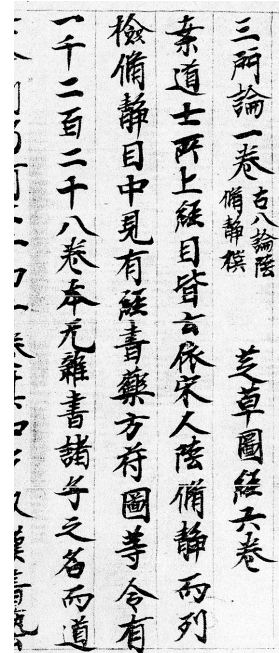 三所論一卷 右八論陸脩靜撰 芝草圖經六卷
案道士所上經目皆云依宋人陸脩靜而列
檢脩靜目中見有經書藥方符圖等令有
一千二百二千八卷本无雜書諸子之名而道
漢書藝